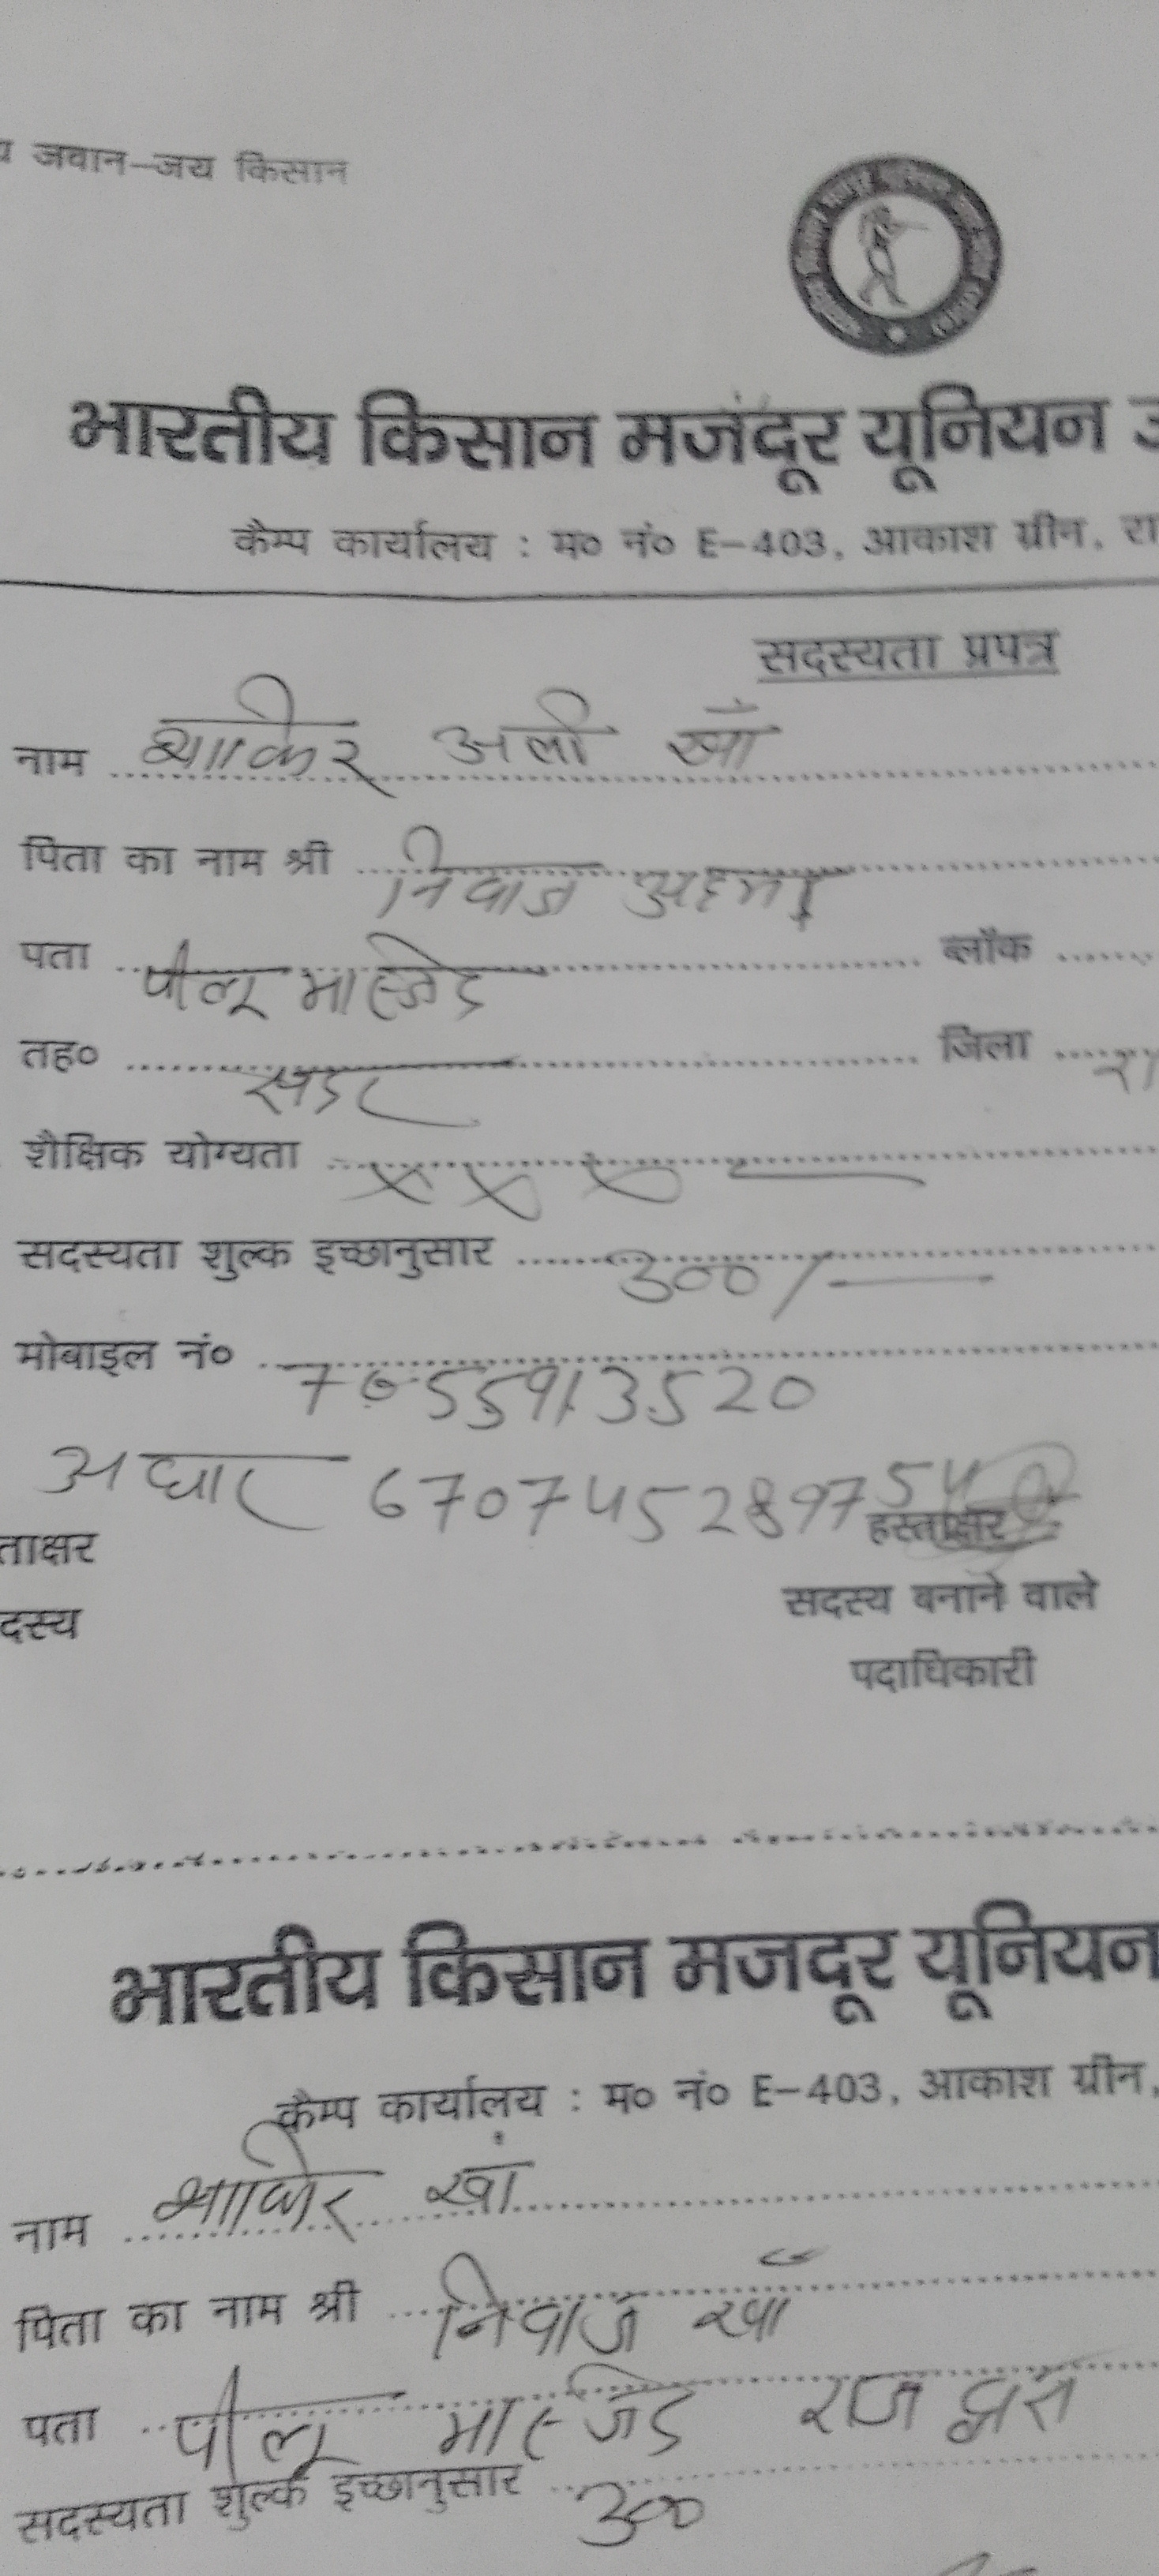 जवान–जय किसान
भारतीय किसान मजदूर यूनियन
कैम्प कार्यालय : म० नं० E-403, आकाश ग्रीन, रा
सदस्यता प्रपत्र
नाम अली खाँ
पिता का नाम श्री निवाज अहमद
पता पीलू मस्जिद ब्लॉक
तह० सदर जिला रा
शैक्षिक योग्यता x x x —
सदस्यता शुल्क इच्छानुसार 300/—
मोबाइल नं० 7655913520
अधार 670745289754
ताक्षर हस्ताक्षर
दस्य सदस्य बनाने वाले
पदाधिकारी
भारतीय किसान मजदूर यूनियन
कैम्प कार्यालय : म० नं० E-403, आकाश ग्रीन,
नाम खां
पिता का नाम श्री निवाज खाँ
पता पीलू मस्जिद राज द्वारा
सदस्यता शुल्क इच्छानुसार 300